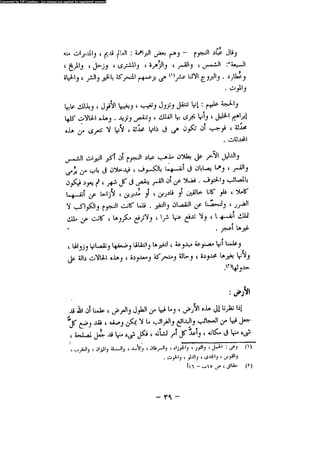 Converted by Tiff Combine - (no stamps are applied by registered version)
وقال عبّاد النجوم - وهم بعض العرب : العالم قديم ، والمدبرات منه
السبعة" : الشمس ، والقمر ، والزهرة ، والمشترى ، وزحل ، والمريخ ،
وعطارد . والبروج الاثنا عشر(1) هى بعزمهم المتحركة كالحيّة والشر ، والحياة
والموت .
والحجة عليهم : إننا نشاهدها تنتقل وتزول وتغيب ، ويغيبها الأفول ، وبذلك عابها
إبراهيم الخليل ، وأنها يجرى بها الفلك ، وتنقص وتزيد . وهذه الآلات كلها
محدثة ، فوجب أن تكون هى فى ذاتها محدثة ، لأنها لا تعرى من هذه
المحدثات .
والدليل الآخر على بطلان مذهب عباد النجوم أن أكبر النيرات الشمس
والقمر ، وهما يصابان فى أنفسهما بالكسوف ، ويدخلان فى باب من يرمى
بالمصائب والحتوف . فضلاً عن أن القمر ينقص فى كل شهر ، ثم يعود فيكون
كاملاً ، فلو كانا خالقين أو قادرين ، أو مدبرين ، لاحترزا عن أنفسهما
الضرر ، وتحصنا عن النقصان والتغير . فلما كانت النجوم والكواكب لا
تملك أنفسها ، ولا تدفع عنها شراً ، ولا ترفع مكروهاً ، كانت عن ملك
غيرها أعجز .
فعلمنا أنها مصنوعة مبدعة ، اخترعها وانتقالها وبعضها ونقصانها وزوالها ،
ولأنها بتغيرها محدودة ، ومتحركة ومعدودة ، وهذه الآلات دالة على
حدوثها(2)
الأرض :
إذا نظرنا إلى هذه الأرض ، وما فيها من الطول والعرض ، فعلمنا أن الله قد
جعل فيها من العجائب والبدائع والغرائب ما لا يمكن وصفه ، فقد وضع كلّ
شىء منها فى مكانه ، وأعدّ كل أمر لشأنه ، فكل شىء منها قد جُعل لمصلحة ،
(1) وهى : الحمل ، والثور ، والجوزاء ، والسرطان ، والأسد ، والسنبلة ، والميزان ، والعقرب ،
والقوس ، والجدى ، والدلو ، والحوت .
(2) حقائق ، ص ١٥ب - ١١٦أ
- ٣٩ -